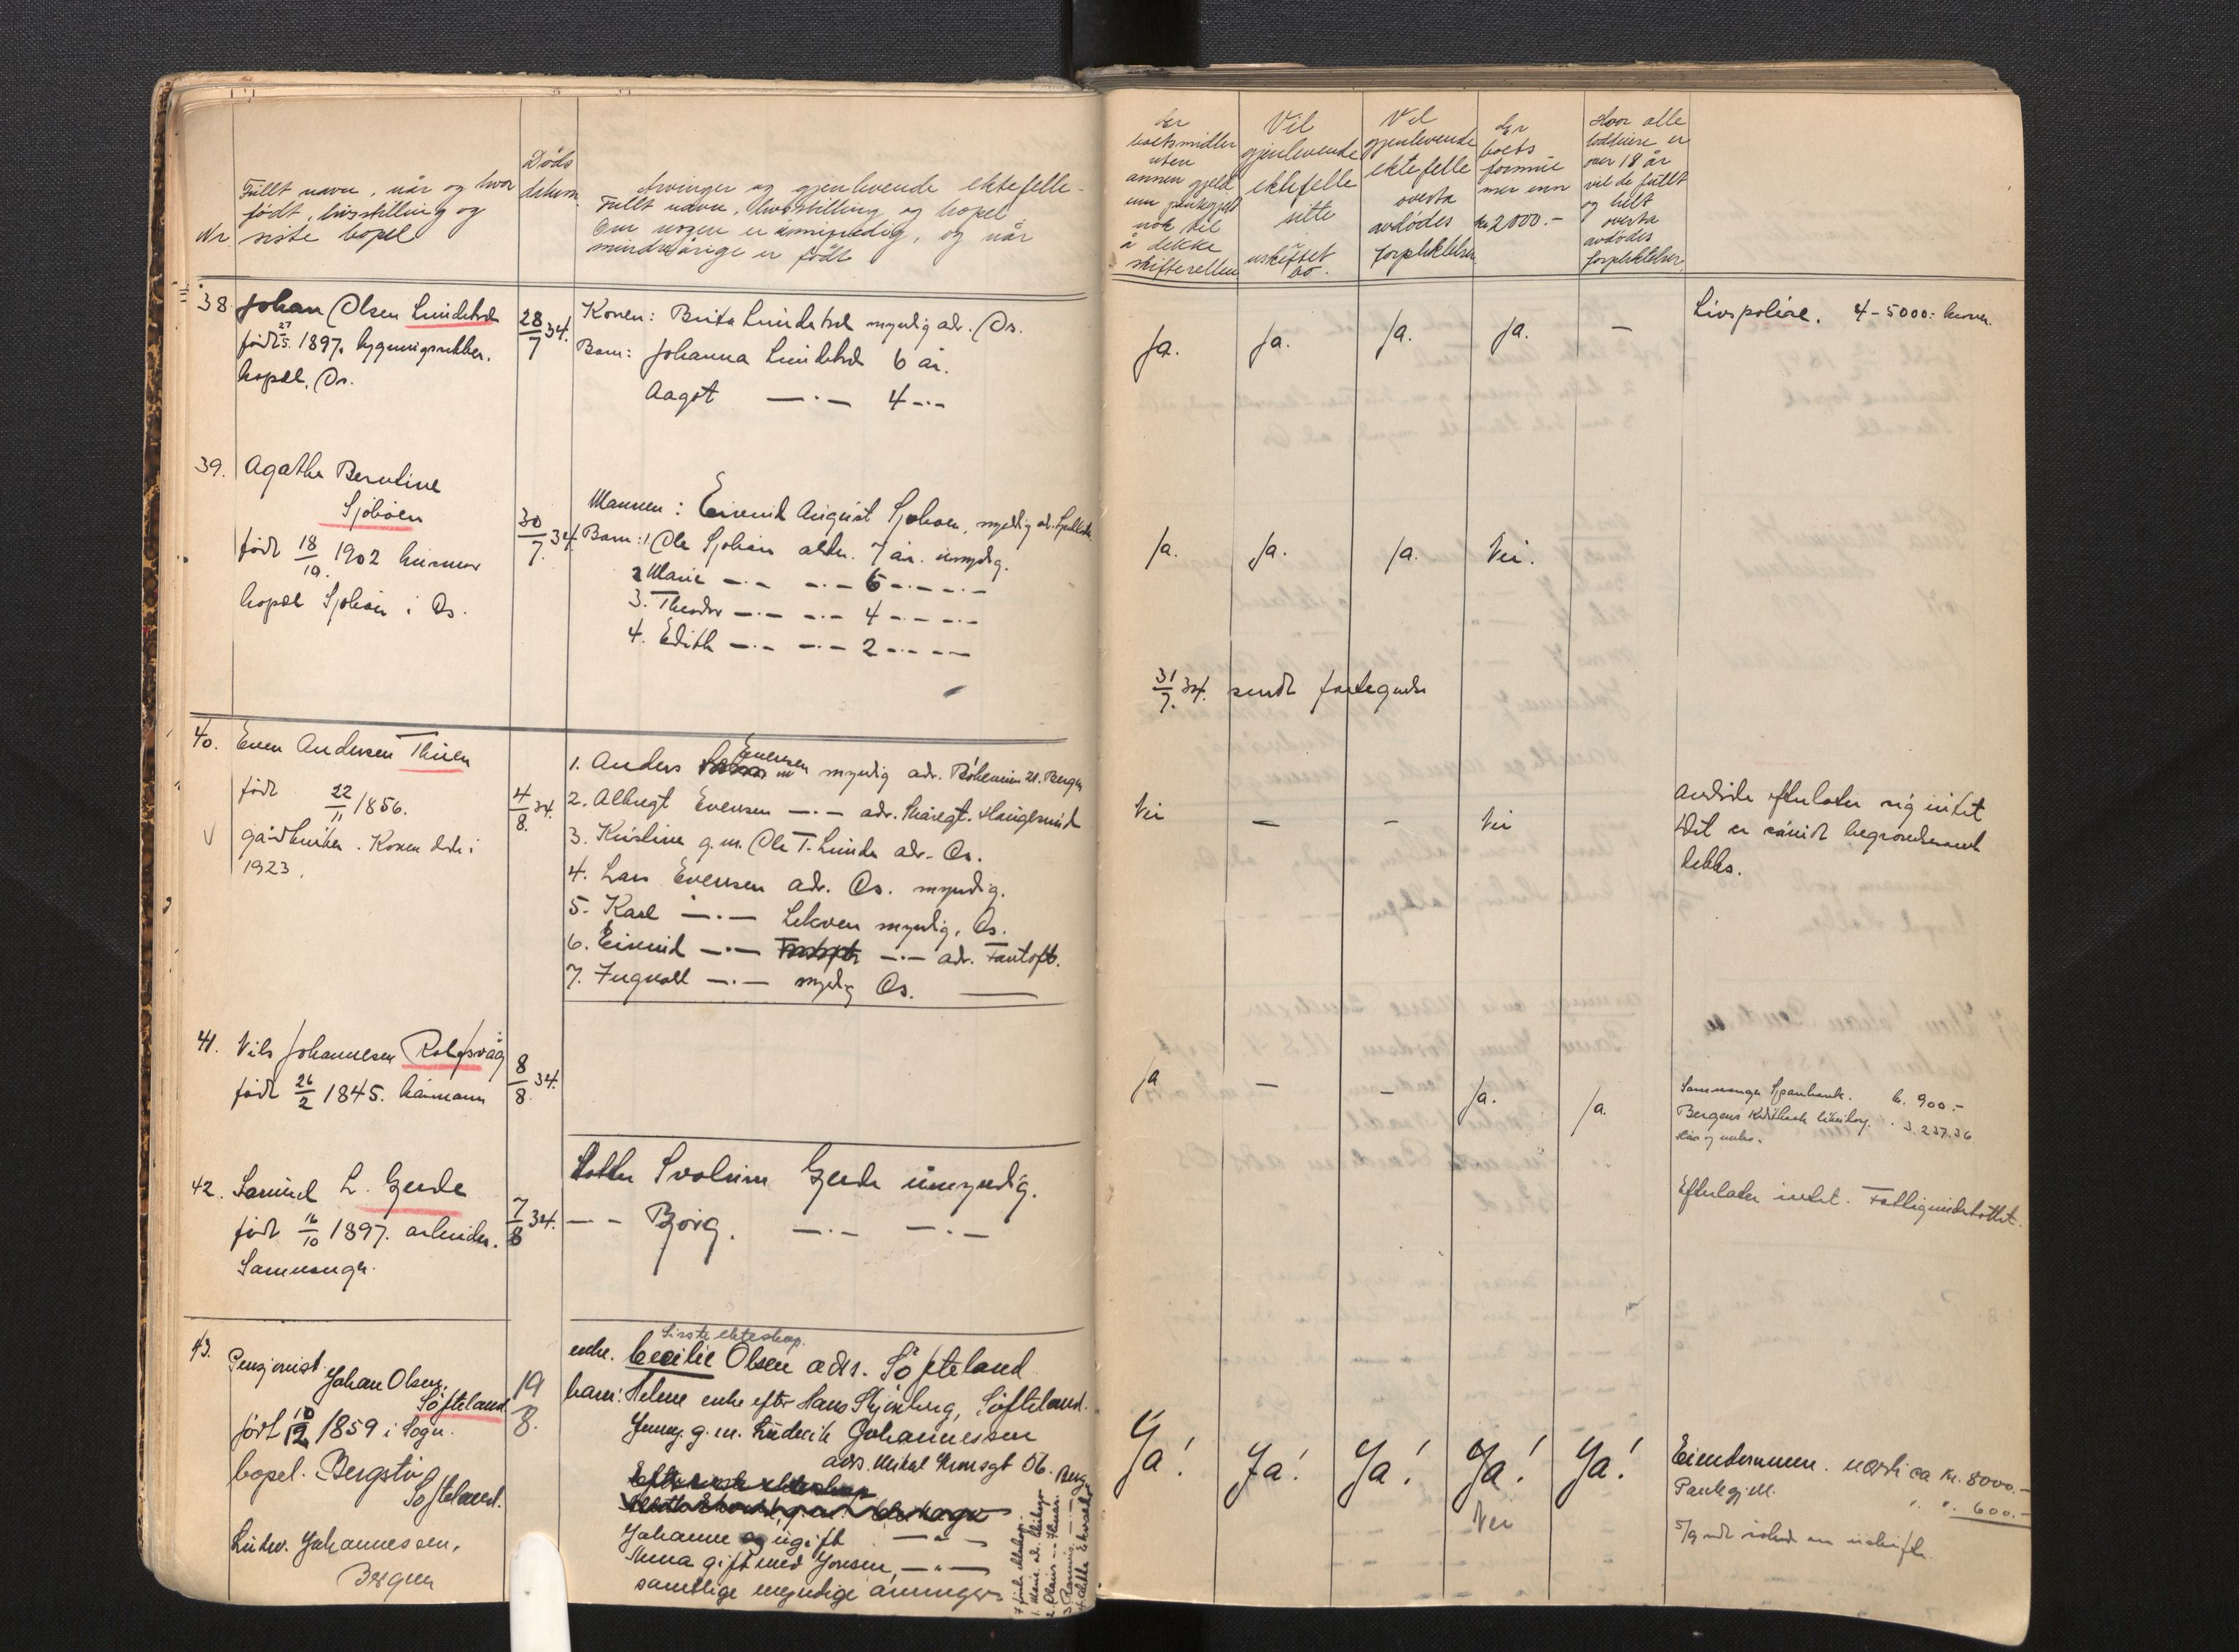 Nr
Fullt navn, når og hvor
født, livsstilling og
siste bopel
Døds
datum.
Arvinger og gjenlevende ektefelle.
Fullt navn, livsstilling og bopel.
Om nogen er umyndig, og når
mindreårige er født
Er
boets midler
uten
annen gjeld
enn pantegjeld
nok til
å dekke
skiftegjelden
Vil
gjenlevende
ektefelle
sitte
i
uskiftet
bo.
Vil
gjenlevende
ektefelle
overta
avdødes
forpliktelser.
Er
boets
formue
mer enn
kr 2000.-
Hvor alle
loddeiere er
over 18 år
vil de fullt
og helt
overta
avdødes
forpliktelser.
38 Johan Olsen Lundetræ
født 27/5. 1897. bygningssnekker.
bopæl, Os.
28/7 34.
Konen: Brita Lundetræ myndig adr. Os.
Barn: Johanna Lundetræ 6 år.
Aagot —·— 4 -·-
Ja. Ja. Ja. Ja. —
Livspolise. 4-5000.- kroner.
39. Agathe Berntine
Sjøbøen
født 18/10. 1902 husmor
bopæl Sjøbøen i Os.
30/7. 34.
Mannen: Eivind August Sjøbøen, myndig adr.
Barn: 1. Ole Sjøbøen alder. 7 år. umyndig.
2 Marie —·— —·— 6 -·- —·—
3. Theodor —·— —·— 4 -·- —·—
4. Edith —·— —·— 2 -·- —·—
Ja. Ja. Ja. Nei.
31/7. 34. sendt fortegnelse
40. Even Andersen Thuen
født 22/11 1856.
gårdbruker. Konen døde i
1923.
4/8. 34.
1. Anders Evensen myndig adr. Bergen
2. Albregt Evensen —·— adr. Haugesund
3. Kristine g.m. Ole T. Lunde adr. Os.
4. Lars Evensen adr. Os. myndig.
5. Karl —·— Lekven myndig, Os.
6. Eivind —·— —·— adr. Fantoft.
7. Ingvald —·— myndig Os. ——
Nei — - Nei
Avdøde efterlater sig intet
Det er såvidt begravelsen
dekkes.
41. Nils Johannesen Rolfsvåg
født 26/2 1845. kårmann
8/8 34.
Ja — - Ja. Ja.
Samnanger Sparebank. kr. 900.-
Bergens Kreditbank 3.237.36
42. Samuel L. Gjerde
født 16/10 1897. arbeider.
Samnanger.
7/8 34.
Datter Solrun Gjerde umyndig.
— - Borg. —·— —·—
Efterlater intet. Fattigunderstøttet.
43.
Pensjonist Johan Olsen
Søfteland
født 10/12 1859 i Sogn.
bopel. Bergstø
Søfteland.
Ludv. Johannessen,
Bergen
19/8.
Siste ekteskap.
enke. Cecilie Olsen adrs. Søfteland
barn: Helene enke efter Hans Skjønberg, Søfteland.
Jenny. g. m. Ludvik Johannessen
adrs. Mikal Kronsgt 56. Berg
Johanne ugift —"—
Anna gift med Jonsen, —"—
samtlige myndige arvinger
Ja! Ja! Ja! Ja! Ja!
Nei
Eiendommen. verdi ca kr. 8000.-
Pantegjeld. " " 600.-